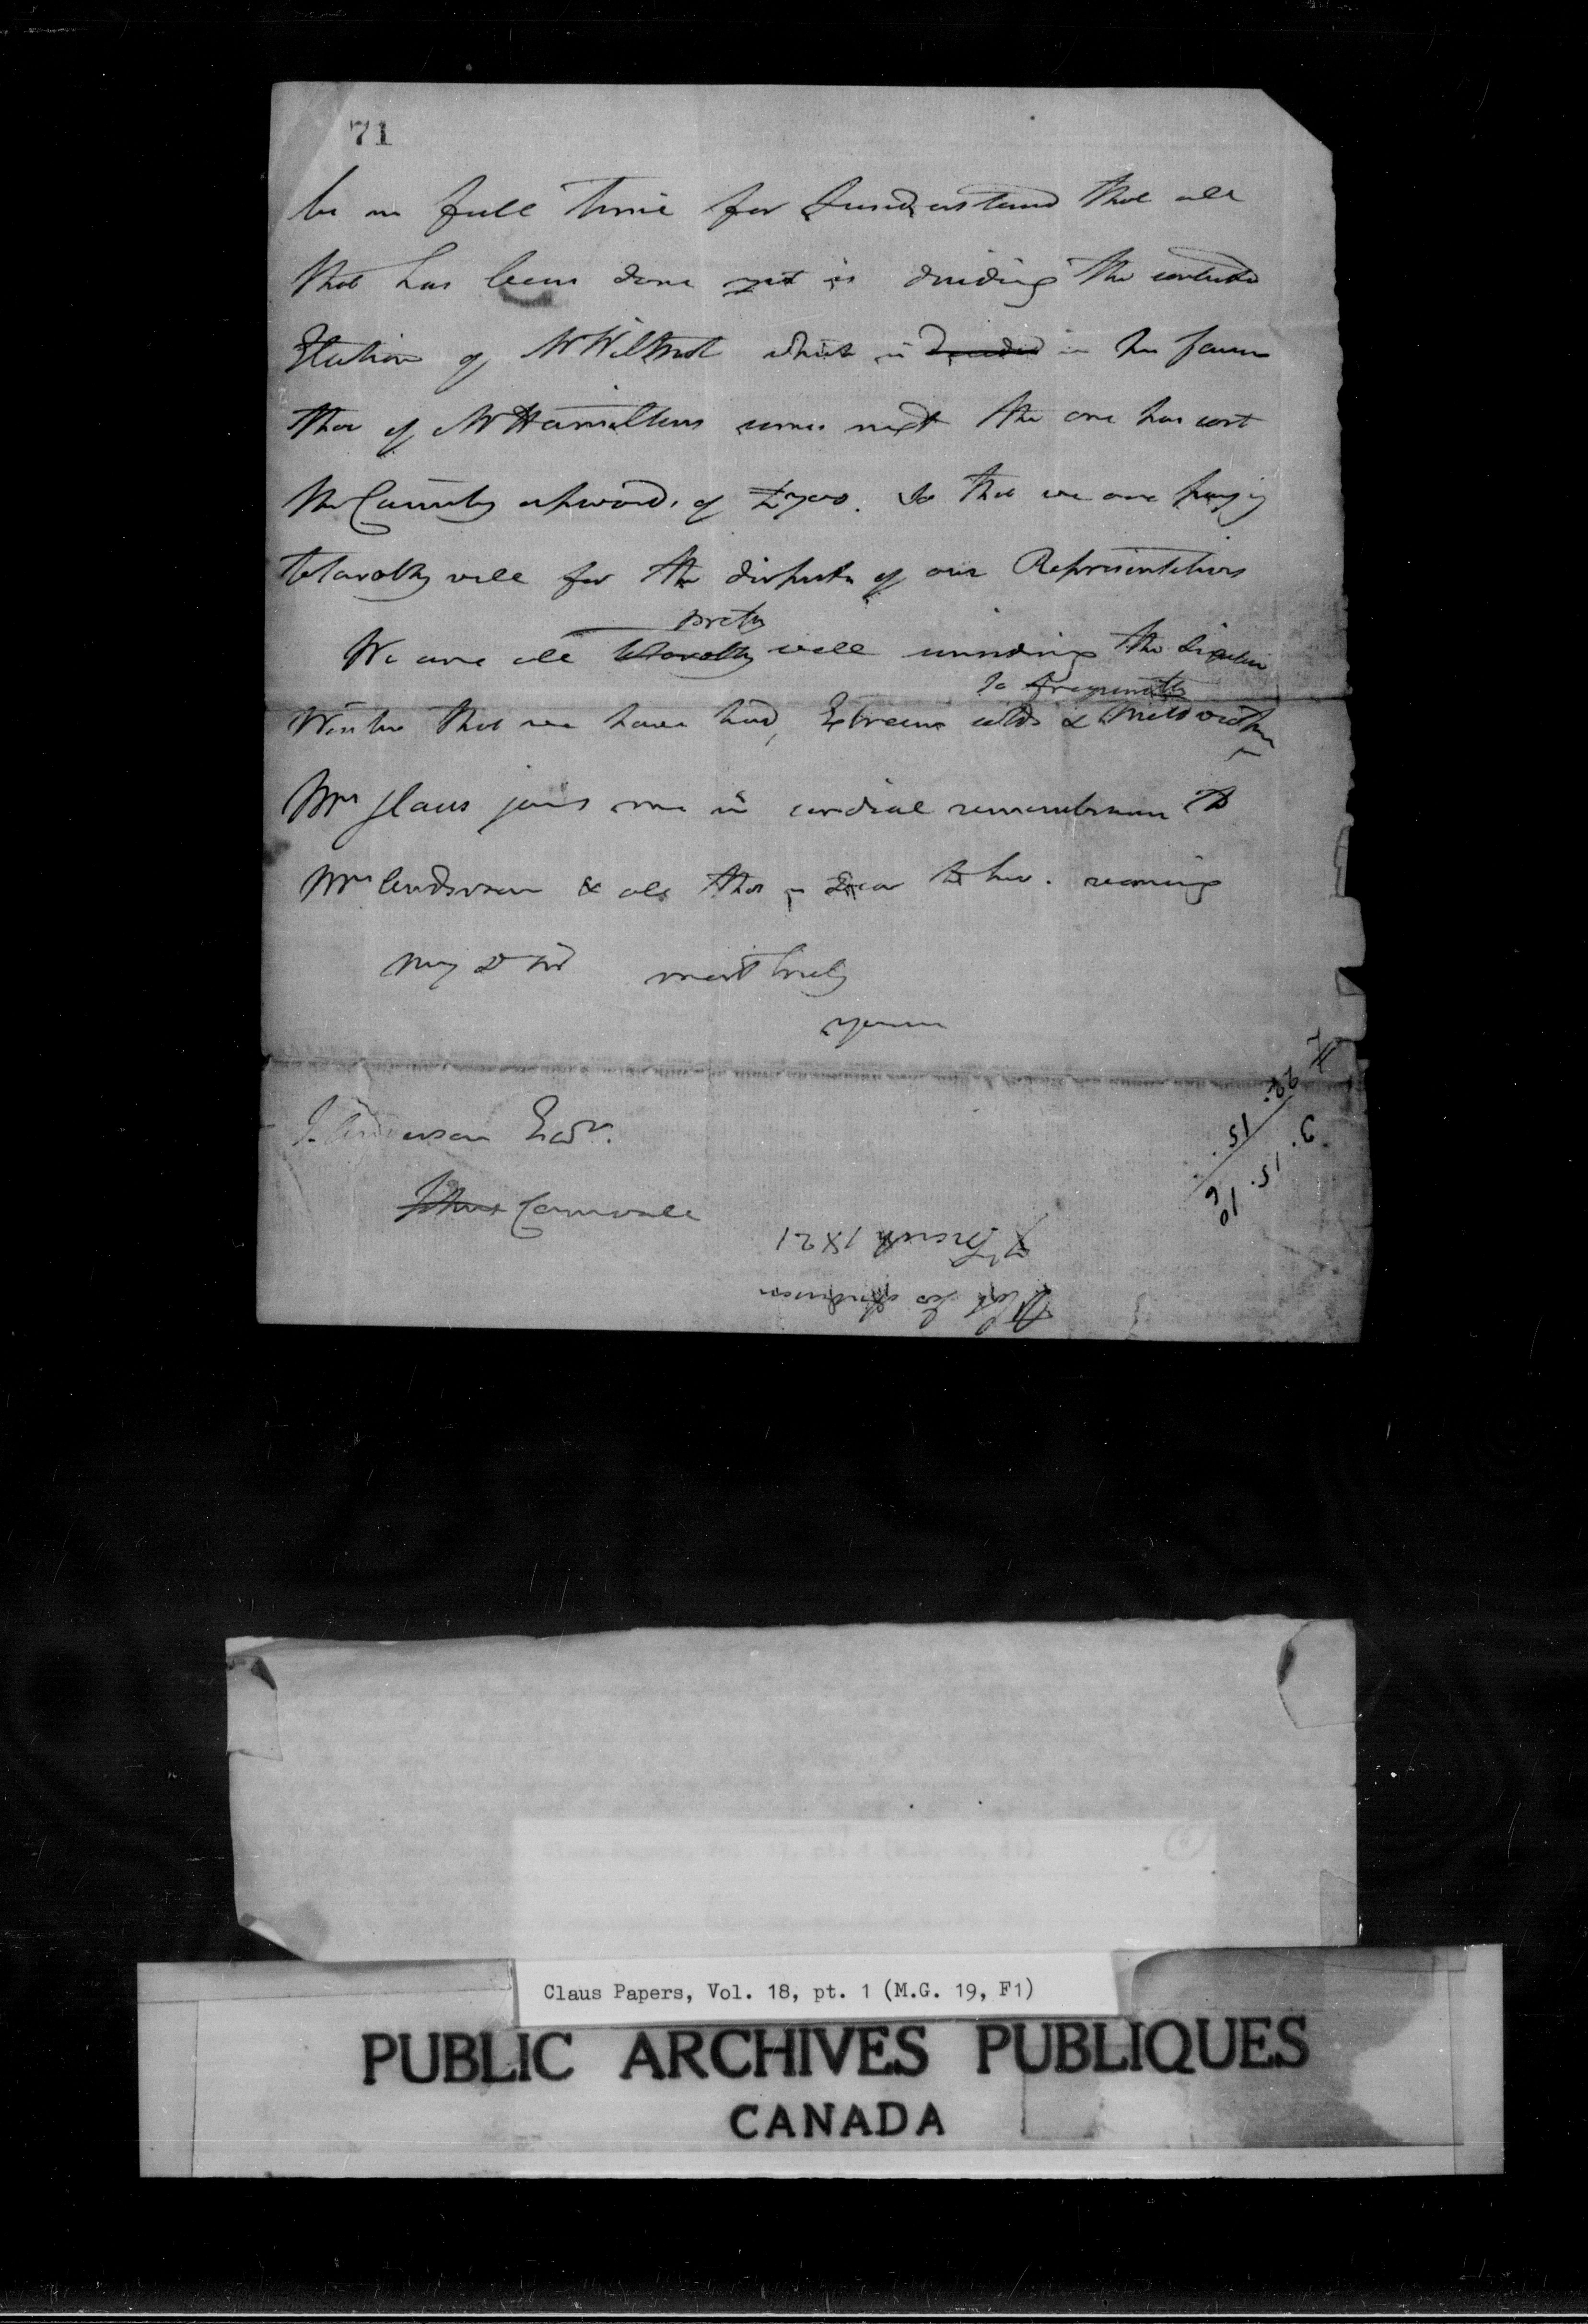 71
be in full time for I understand that all
that has been done yet is deciding the contested
Election of Mr Wilmot which is decided in his favour
that of Mr Hamiltons comes next the one has cost
the County upwards of £700. So that we are paying
tolarably well for the disputes of our Representatives
pretty
We are all tolarably well considering the
to frequently
Winter that we have had, Extream colds & Mild weather
Mrs Claus joins me in cordial remembrance to
Mrs Anderson & all that is Dear to her. remaing
My D Sir most truly
yours
J. Anderson Esqr.
Cornwall
7 March 1821
Anderson
22.
15.
3. 15. 10
Claus Papers, Vol. 18, pt. 1 (M.G. 19, F1)
PUBLIC ARCHIVES PUBLIQUES
CANADA